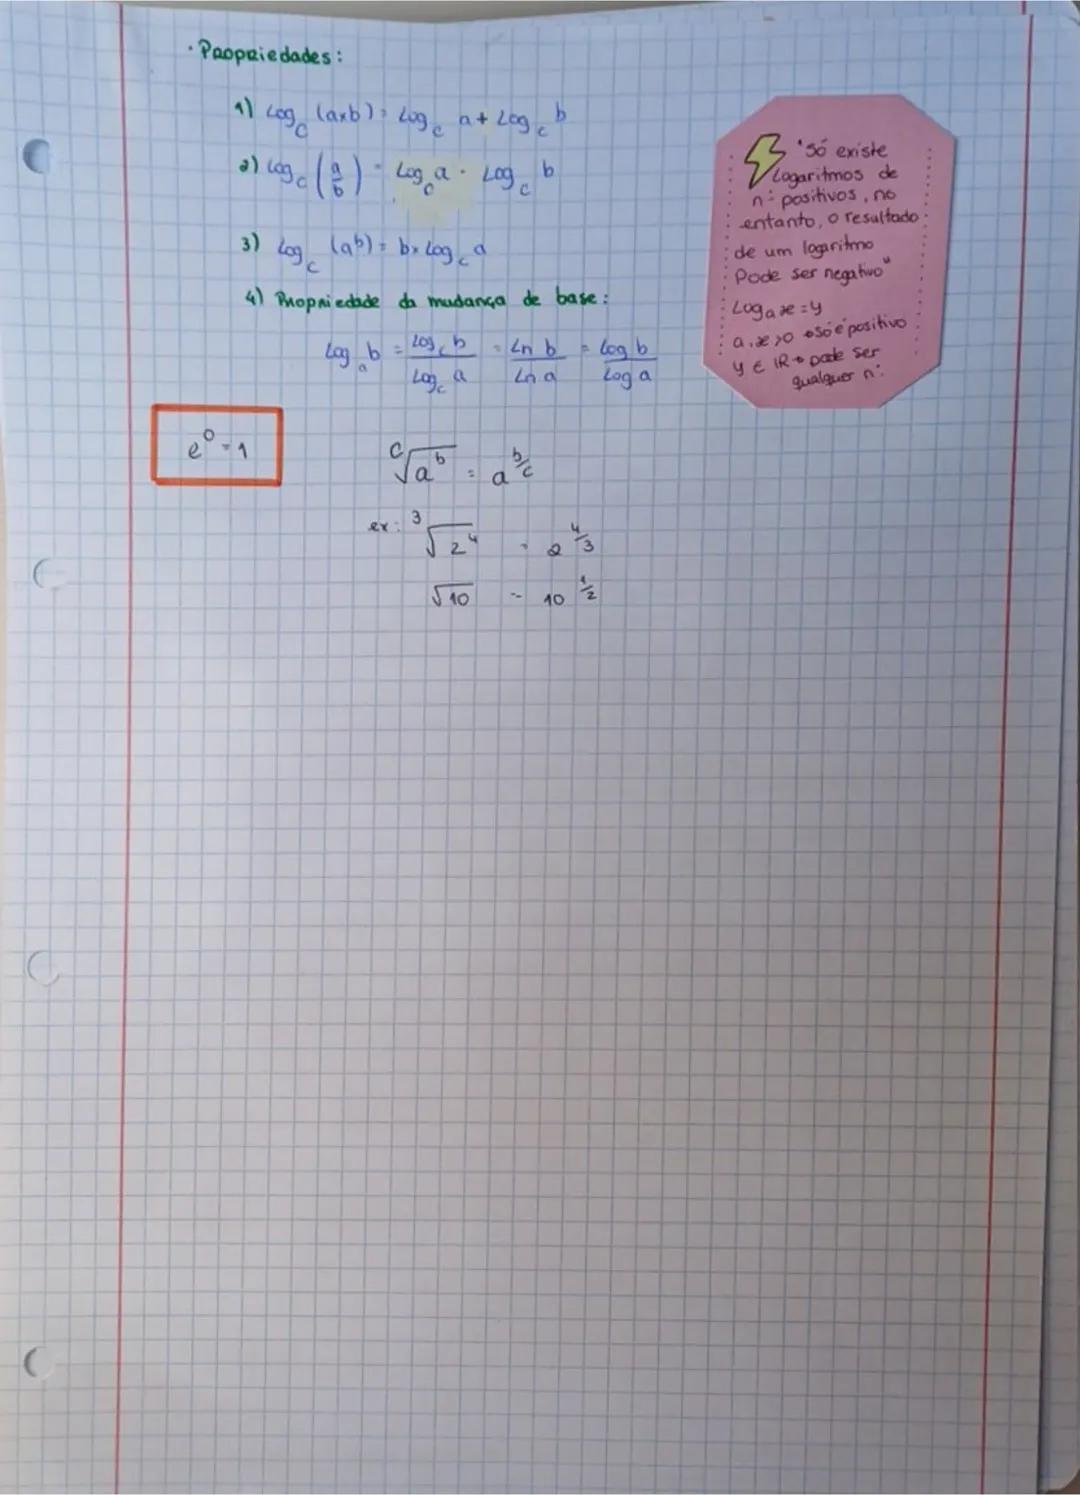 · Propriedades:
1) Log_c (a×b) = Log_c a + Log_c b
2) Log_c (a/b) - Log_c a - Log_c b
3) Log_c (a^b) = b × Log_c a
4) Propriedade da mudança de base:
Log_a b = Log_c b / Log_c a = Ln b / Ln a = Log b / Log a
e^0 = 1
c√a^b = a^b/c
ex: 3√2^4 - 2^4/3
√10 - 10^1/2
"Só existe
Logaritmos de
nº positivos, no
entanto, o resultado
de um logaritmo
Pode ser negativo"
Log_a x = y
a, x > 0 → só é positivo
y ∈ IR → pode ser
qualquer nº.